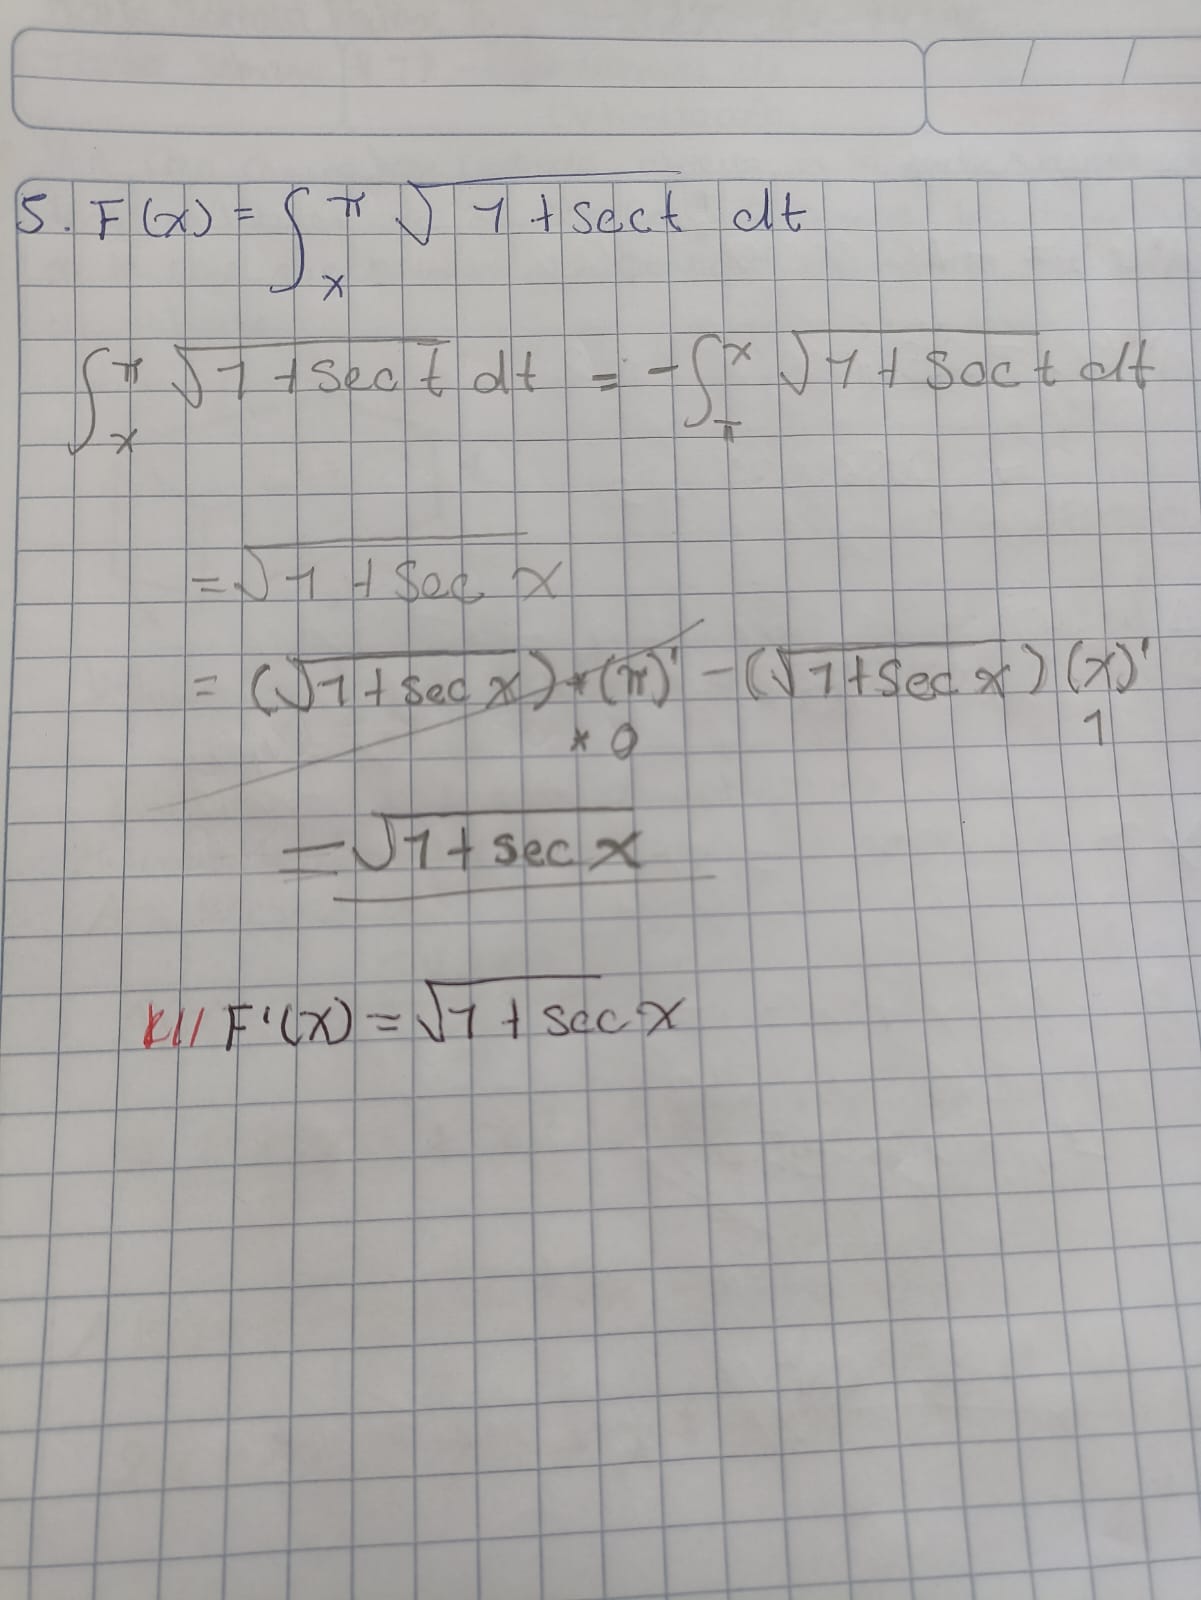 5. F(x) = ∫_x^π √(1 + sec t) dt
∫_x^π √(1 + sec t) dt = -∫_π^x √(1 + sec t) dt
= √(1 + sec x)
= (√(1 + sec x)) * (π)' - (√(1 + sec x)) (x)'
* 0 1
= √(1 + sec x)
R// F'(x) = √(1 + sec x)